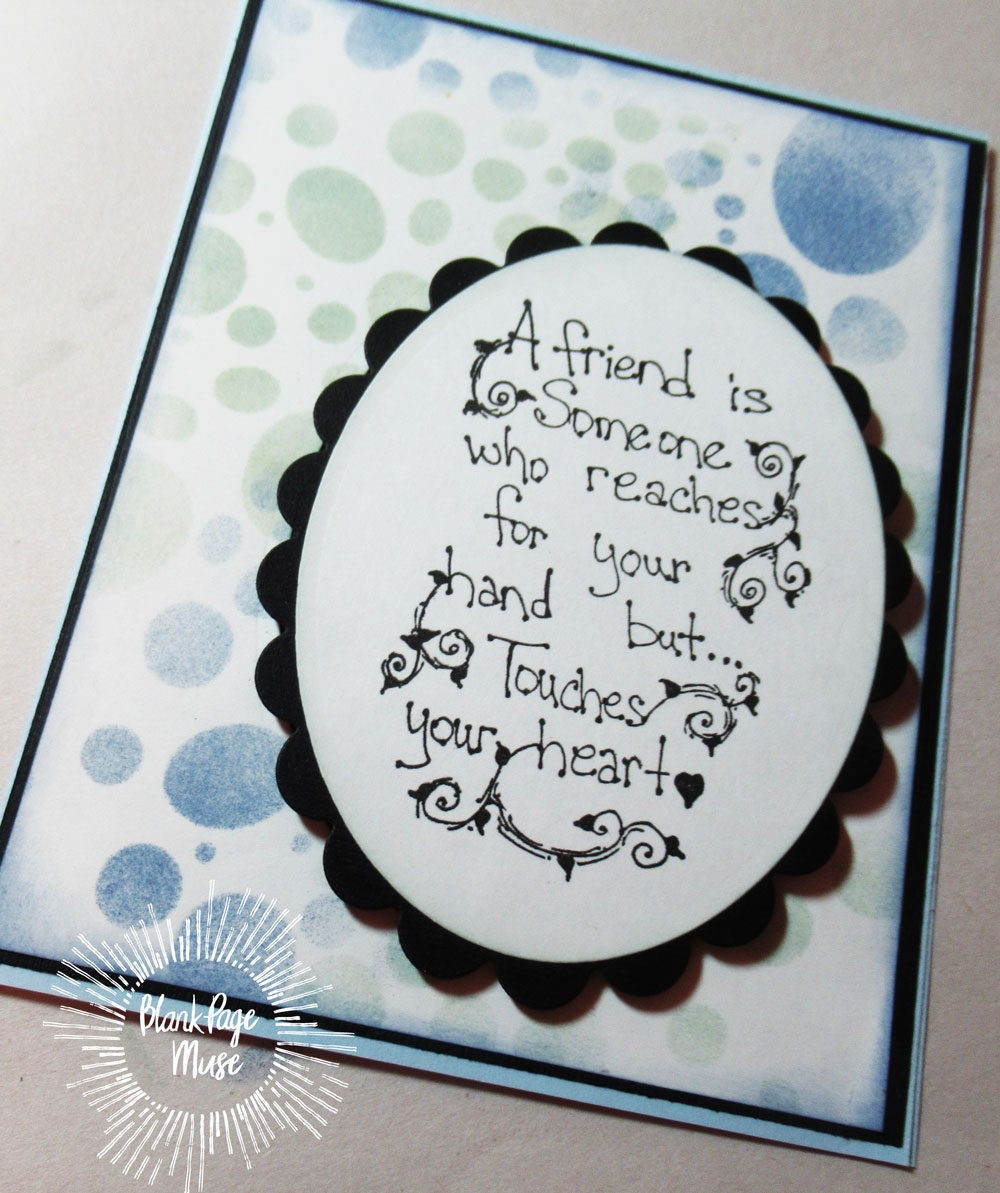 A friend is
Someone
who reaches
for your
hand but...
Touches
your heart
BlankPage
Muse